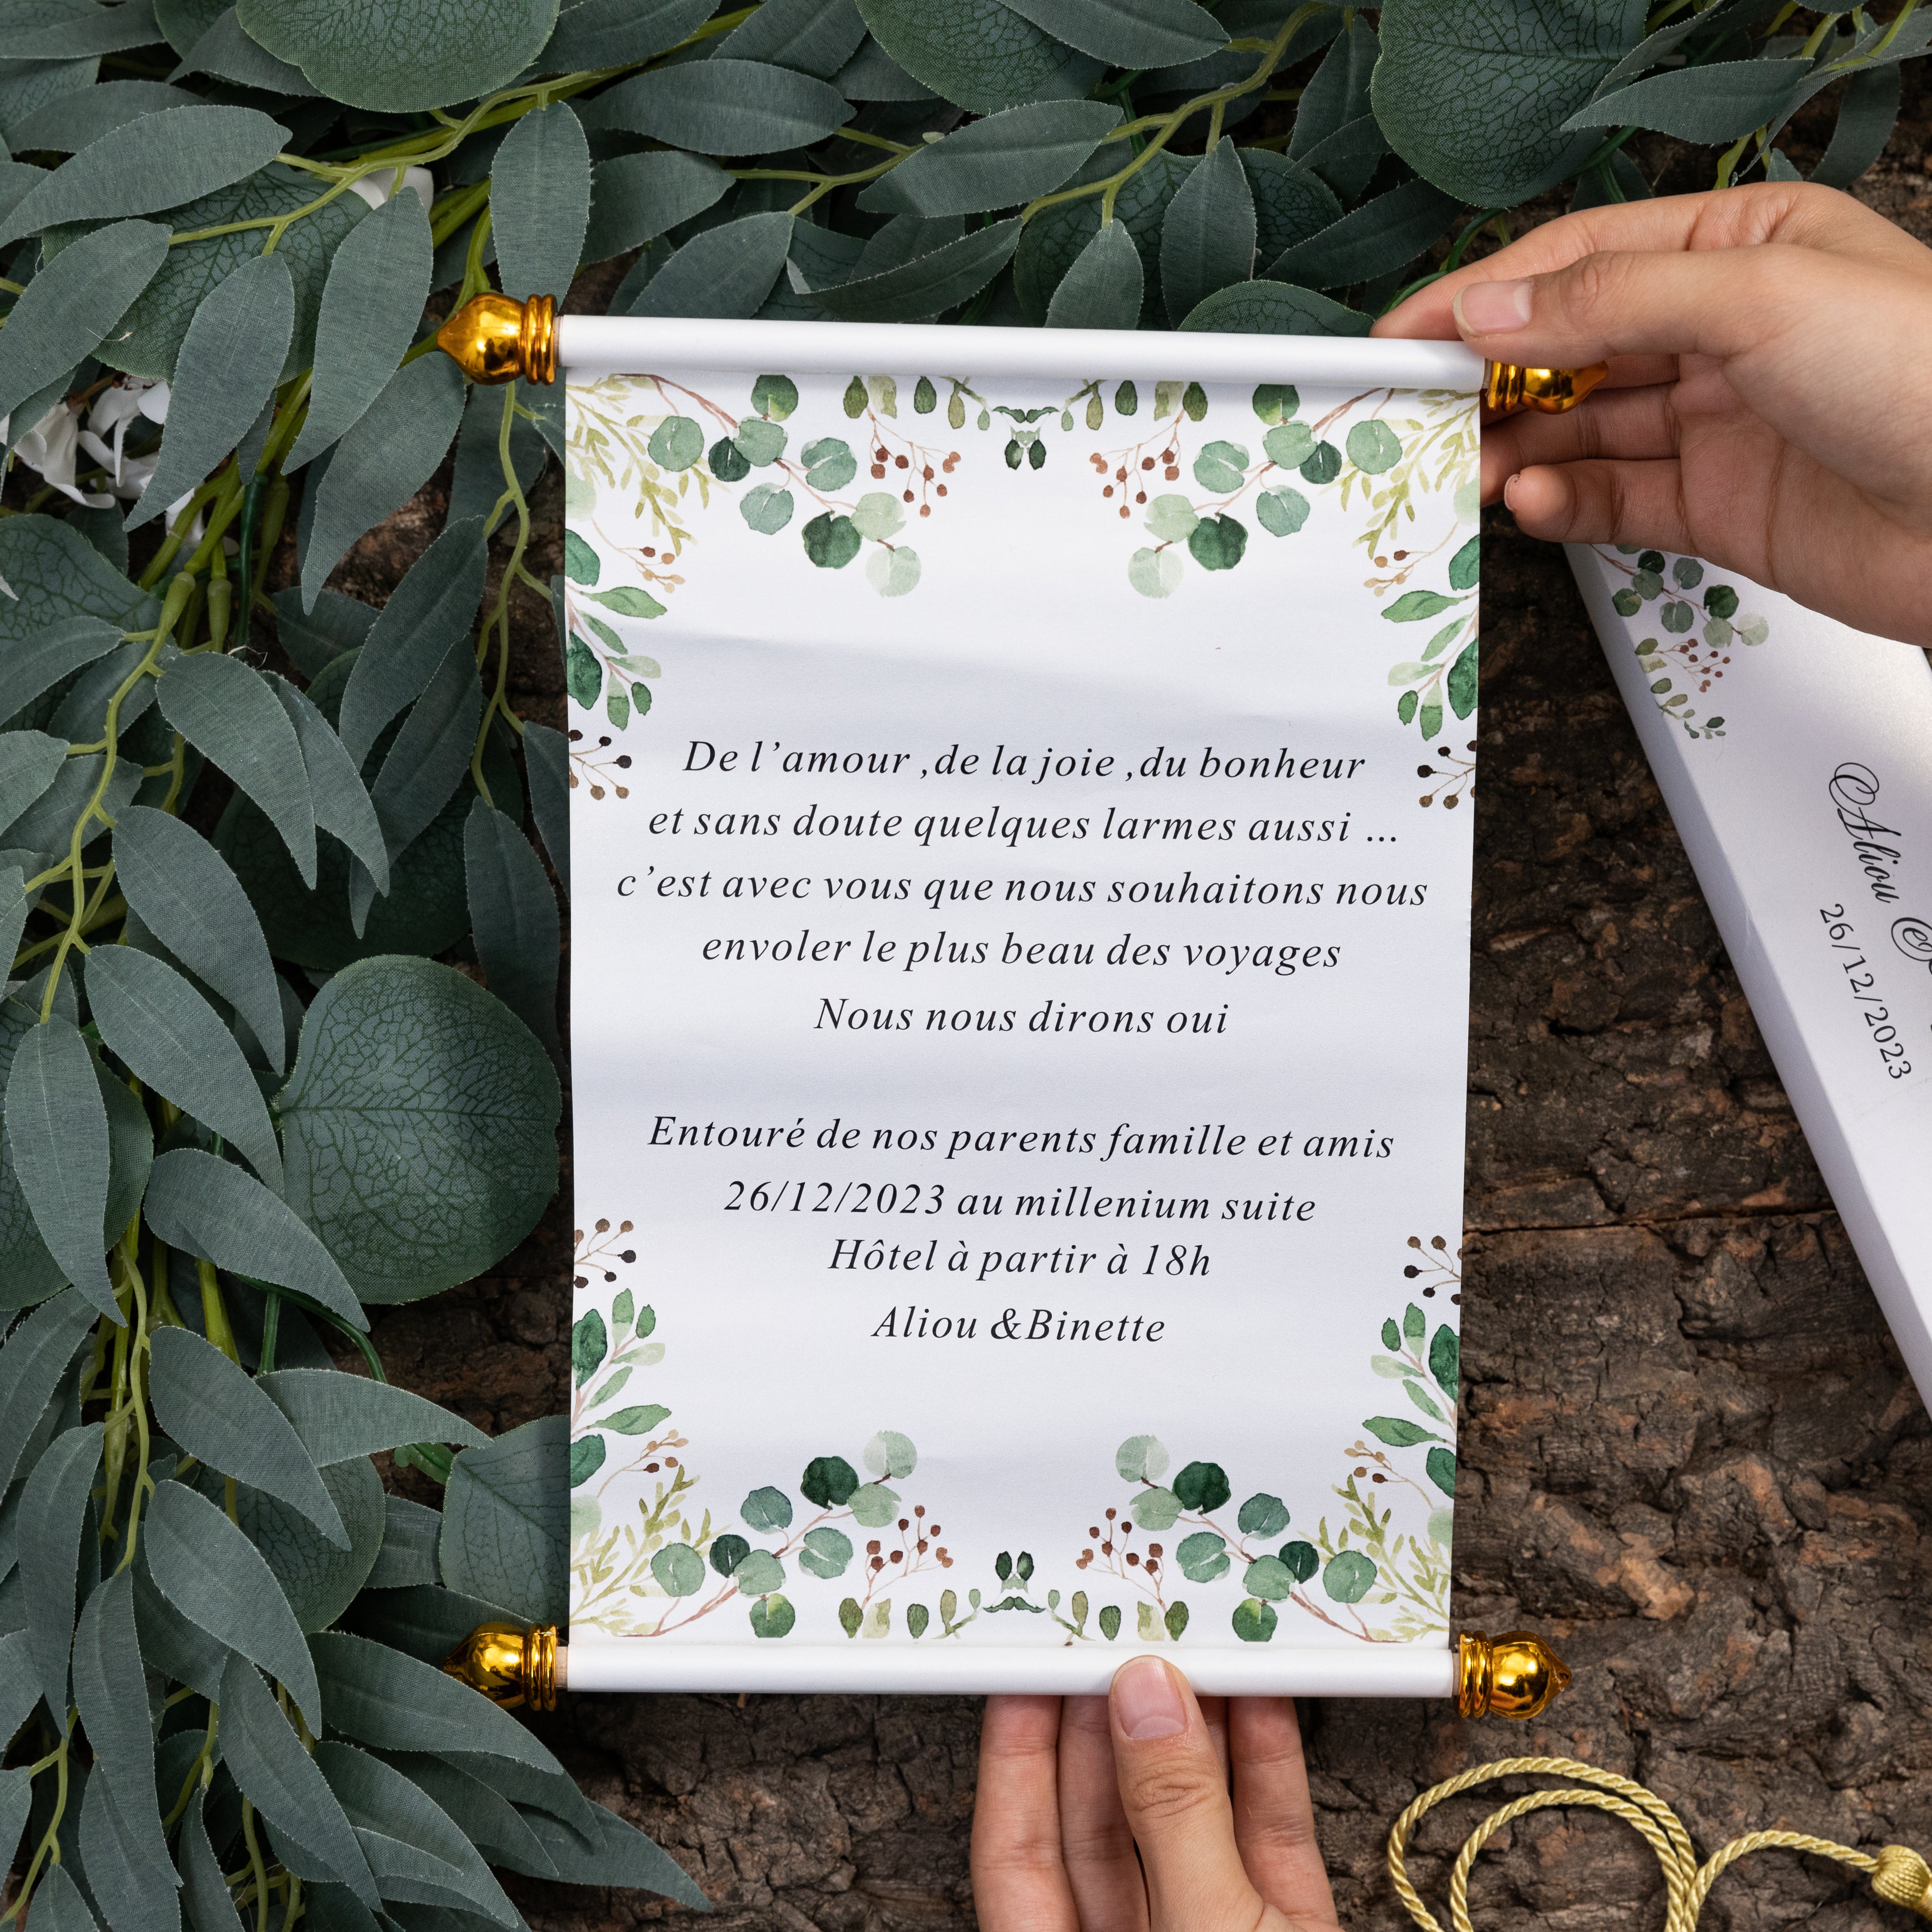 De l’amour ,de la joie ,du bonheur
et sans doute quelques larmes aussi ...
c’est avec vous que nous souhaitons nous
envoler le plus beau des voyages
Nous nous dirons oui
Entouré de nos parents famille et amis
26/12/2023 au millenium suite
Hôtel à partir à 18h
Aliou &Binette
Aliou
26/12/2023